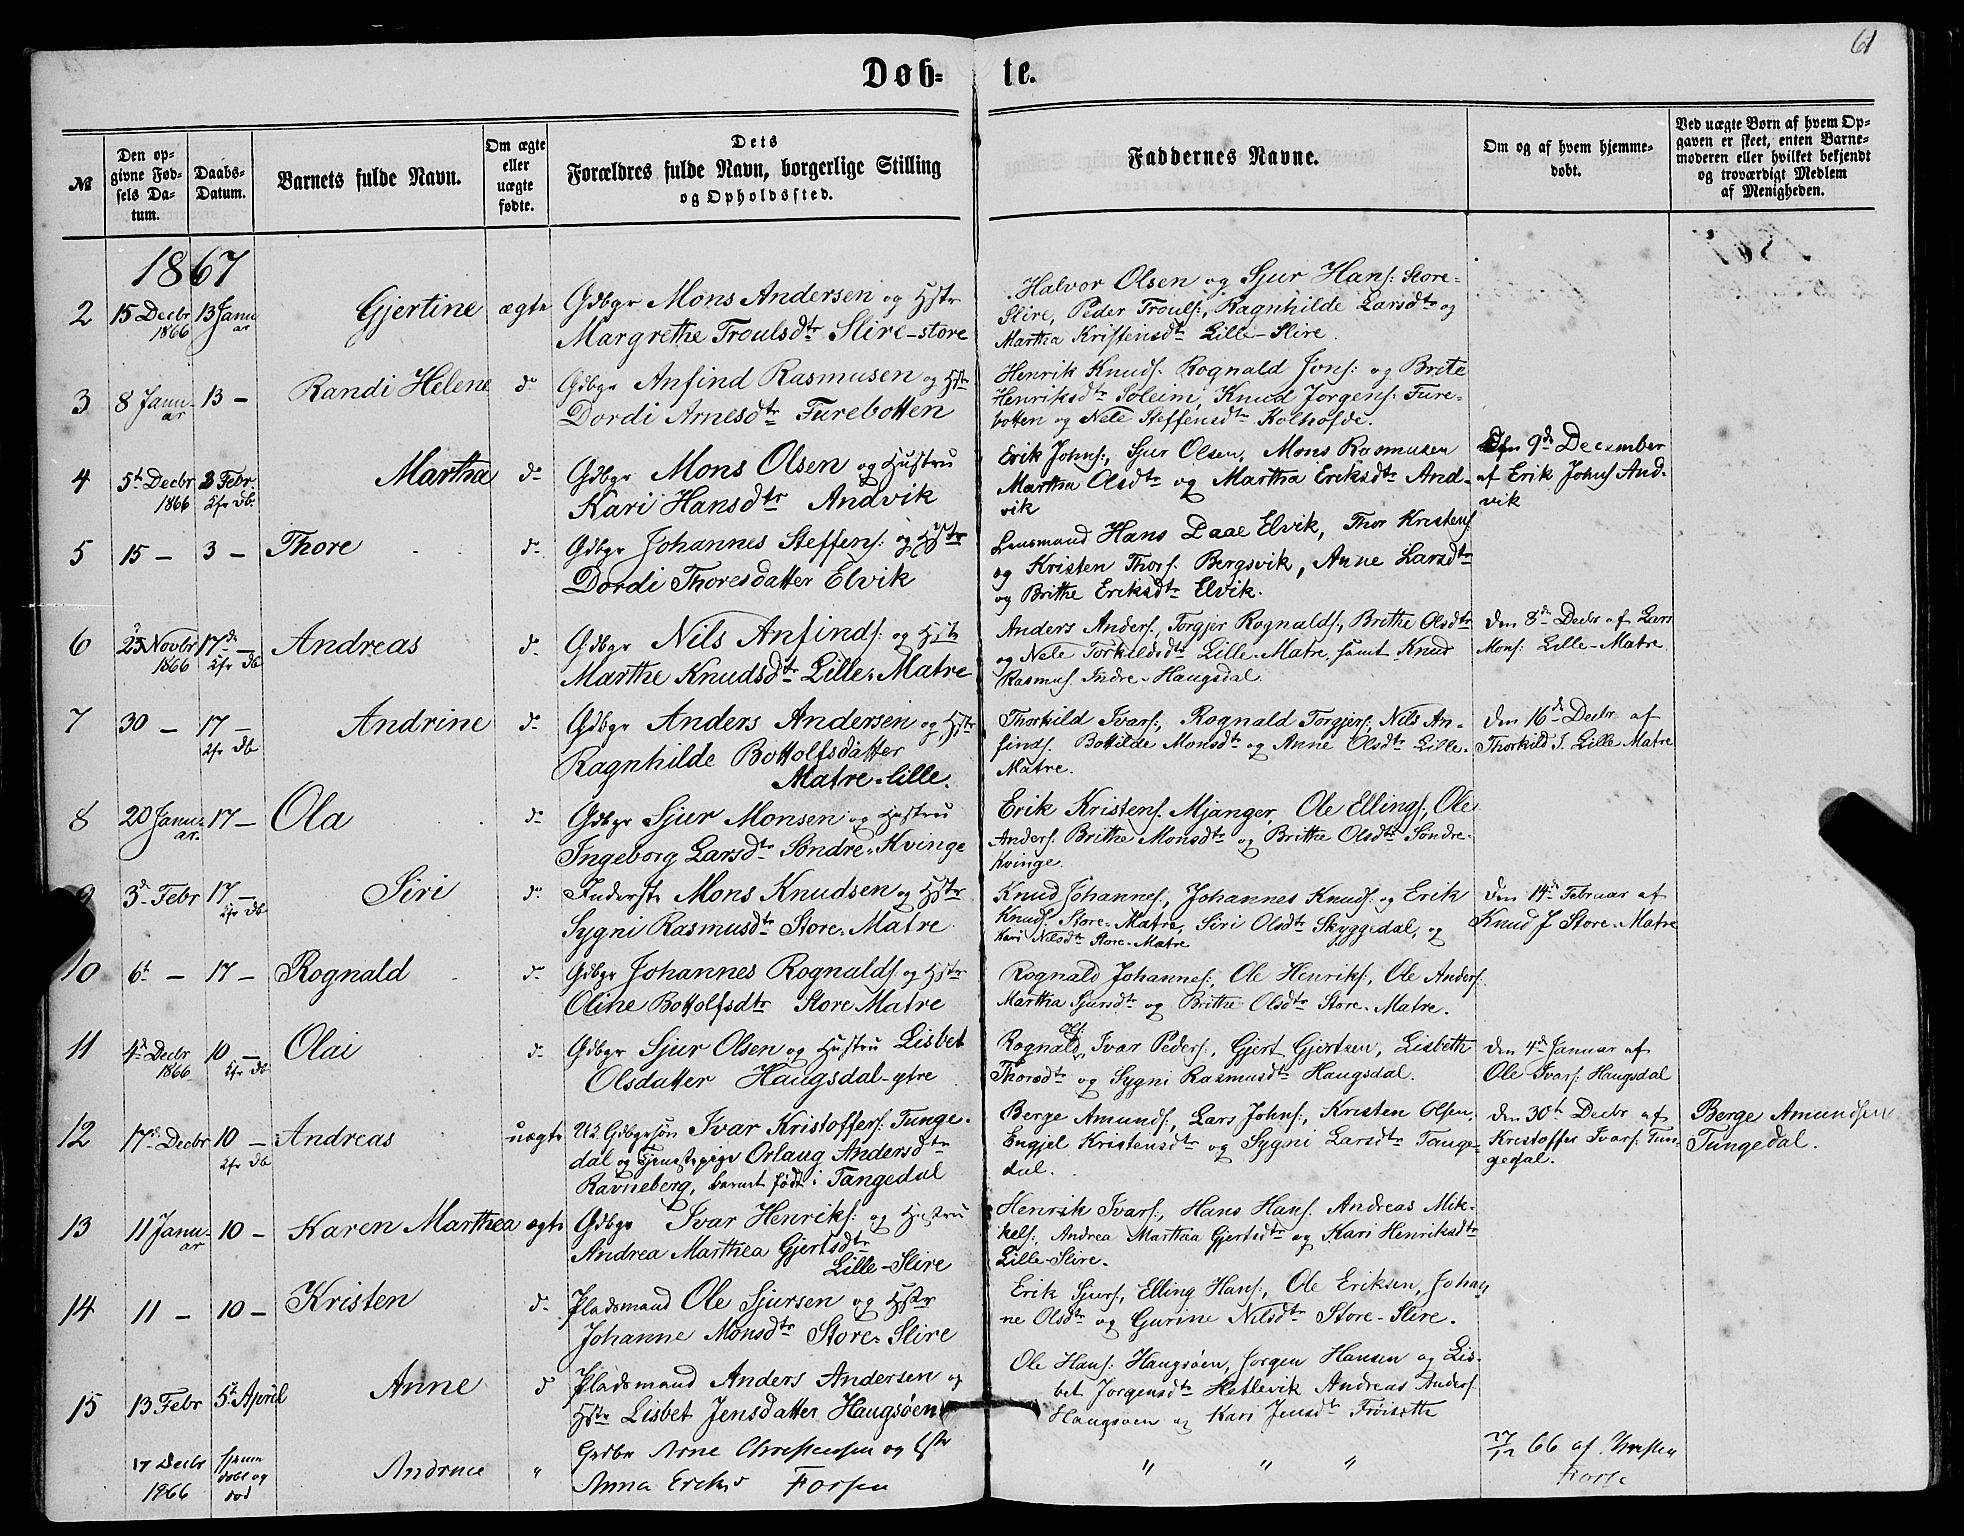 61
Døb=
te.
№
Den op-
givne Fød-
sels Da-
tum.
Daabs-
Datum.
Barnets fulde Navn.
Om ægte
eller
uægte
fødte.
Dets
Forældres fulde Navn, borgerlige Stilling
og Opholdssted.
Faddernes Navne.
Om og af hvem hjemme-
døbt.
Ved uægte Børn af hvem Op-
gaven er skeet, enten Barne-
moderen eller hvilket bekjendt
og troværdigt Medlem
af Menigheden.
1867
2 15 Decbr 1866 13 Janu ar Gjertine ægte
Gdbgr Mons Andersen og Hstr
Margrethe Troulsdtr Slire-store
Halvor Olsen og Sjur Hans: Store-
Slire, Peder Trouls:, Ragnhilde Larsdtr og
Martha Kristensdtr Lille-Slire.
3 8 Janu- ar 13 - Randi Helene do
Gdbgr Anfind Rasmusen og Hstr
Dordi Arnesdtr Furebotten
Henrik Knuds: Rognald Jons: og Brite
Henriksdtr Soleim, Knud Jorgens: Fure-
botten og Nele Steffensdtr Kolhofde.
4 5t Decbr 1866 3 Febr. Kfr db. Martha d-
Gdbgr Mons Olsen og Hustru
Kari Hansdtr Andvik
Erik Johns:, Sjur Olsen, Mons Rasmusen
Martha Olsdtr og Martha Eriksdtr And-
vik
Den 9de December
af Erik Johns And-
vik
5 15 - 3 - Thore d-
Gdbgr Johannes Steffens: og Hstr
Dordi Thoresdatter Elvik
Lensmand Hans Daae Elvik, Thor Kristens:
og Kristen Thors: Bergsvik, Anne Larsdtr
og Brithe Eriksdtr Elvik.
6 25 Novbr 1866 17de - Kfr db Andreas d-
Gdbgr Nils Anfinds: og Hstr
Marthe Knudsdtr Lille-Matre
Anders Anders:, Torgjer Rognalds:, Brithe Olsdtr
og Nele Torkildsdtr Lille-Matre, samt Knud
Rasmus: Indre-Haugsdal.
Den 8de Decbr af Lars
Mons: Lille-Matre
7 30 - 17 - Kfr db Andrine d-
Gdbgr Anders Andersen og Hstr
Ragnhilde Bottolfsdatter
Matre-lille.
Thorkild Ivars:, Rognald Torgjers:, Nils An-
finds: Botilde Monsdtr og Anne Olsdtr Lille-
Matre.
Den 16de Decbr af
Thorkild I. Lille Matre
8 20 Janu- ar. 17 - Ola d-
Gdbgr Sjur Monsen og Hustru
Ingeborg Larsdtr Søndre-Kvinge
Erik Kristens: Mjanger, Ole Ellings:, Ole
Anders: Brithe Monsdtr og Brithe Olsdtr Søndre-
Kvinge.
9 3d- Febr 17 - Kfr db Siri d-
Inderste Mons Knudsen og Hstr
Sygni Rasmusdtr Store-Matre
Knud Johannes:, Johannes Knuds: og Erik
Knuds: Store-Matre, Siri Olsdtr Skyggedal, og
Kari Nilsdtr Store-Matre
Den 14de Februar af
Knud J Store-Matre
10 6t - 17 - Rognald d-
Gdbgr Johannes Rognalds: og Hstr
Oline Bottolfsdtr Store Matre
Rognald Johannes:, Ole Henriks:, Ole Anders:
Martha Sjursdtr og Brithe Olsdtr Store-Matre.
11 4de Decbr 1866 10 - Kfr db Olai d-
Gdbgr Sjur Olsen og Hustru Lisbet
Olsdatter Haugsdal-ytre
Rognald Ols:, Ivar Peders:, Gjert Gjertsen, Lisbeth
Thorsdtr og Sygni Rasmusdtr Haugsdal.
Den 4de Januar af
Ole Ivars: Haugsdal
12 17de Decbr 10 - Kfr db Andreas uægte
U2. Gdbgrsøn Ivar Kristoffers: Tunge-
dal og Tjenestepige Orlaug Andersdtr
Ravneberg, barnet født i Tangedal
Berge Amunds:, Lars Johns:, Kristen Olsen,
Engjel Kristensdtr og Sygni Larsdtr Tange-
dal.
Den 30t Decbr af
Kristoffer Ivars: Tun-
gedal.
Berge Amundsen
Tungedal.
13 11 Janu- ar 10 - Karen Marthea ægte
Gdbgr Ivar Henriks: og Hustru
Andrea Marthea Gjertsdtr
Lille-Slire
Henrik Ivars:, Hans Hans: Andreas Mik-
kels:, Andrea Marthea Gjertsdtr og Kari Henriksdtr
Lille-Slire.
14 11 - 10 - Kristen d-
Pladsmand Ole Sjursen og Hstr
Johanne Monsdtr Store-Slire
Erik Sjurs:, Elling Hans:, Ole Eriksen, Johan-
ne Olsdtr og Gurine Nilsdtr Store-Slire.
15 13 Febr 5t April Anne d
Pladsmand Anders Andersen og
Hstr Lisbet Jensdatter Haugsøen
Ole Hans: Haugsøen, Jorgen Hansen og Lis-
bet Jorgensdtr Hetlevik Andreas Anders:
Haugsøen og Kari Jensdtr Frøiseth
17 Decbr 1866 hjemme døbt og død Andrine "
Grdbr Arne Christensen og Hstr
Anna Eriksd Forsen
" " "
27/12 66 af